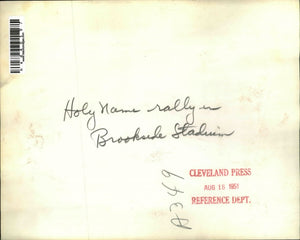 Holy Name rally in
Brookside Stadium
CLEVELAND PRESS
AUG 18 1951
REFERENCE DEPT.